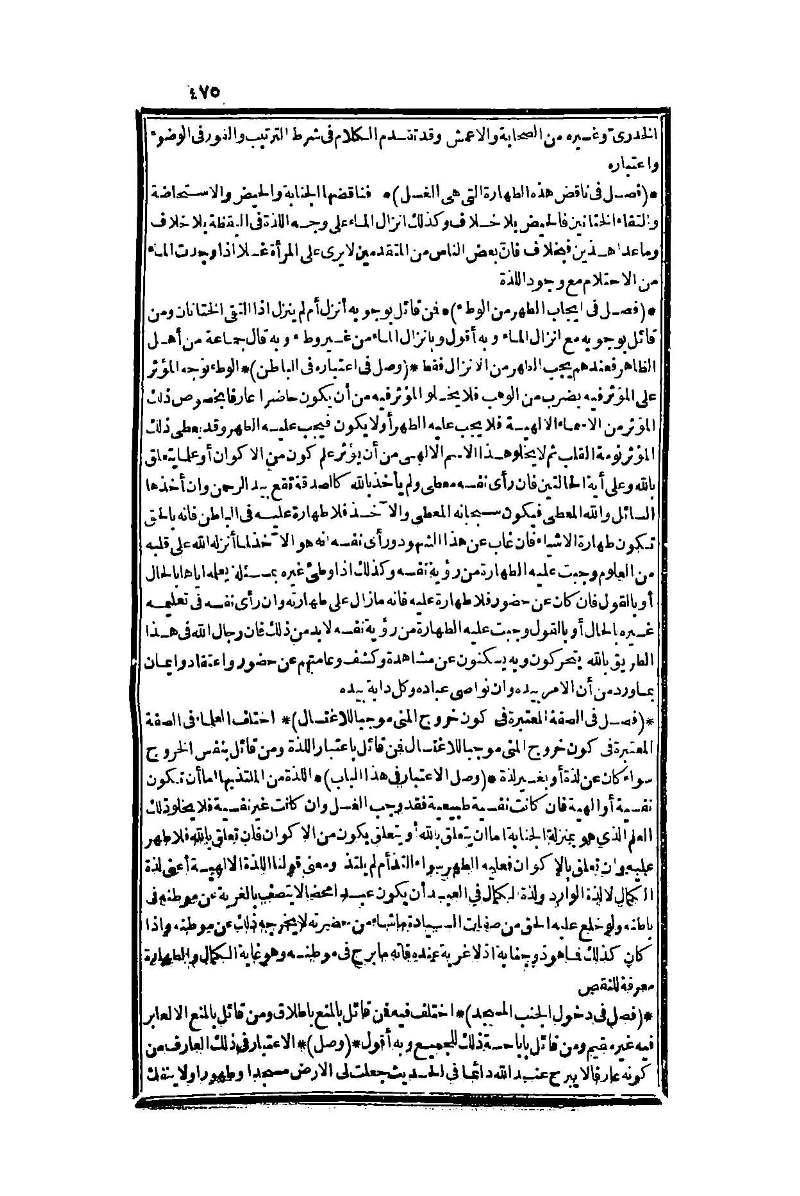 ٤٧٥
الخدرى وغيره من الصحابة والاعمش وقد تقدم الكلام فى شرط الترتيب والفور فى الوضوء
واعتباره
*(فصل فى ناقض هذه الطهارة التى هى الغسل)* فناقضها الجنابة والحيض والاستحاضة
والتقاء الختانين فالحيض بلا خلاف وكذلك انزال الماء على وجه اللذة فى اليقظة بلا خلاف
وما عدا هذين فبخلاف فان بعض الناس من المتقدمين لا يرى على المرأة غسلا اذا وجدت الماء
من الاحتلام مع وجود اللذة
*(فصل فى ايجاب الطهر من الوطء)* فمن قائل بوجوبه أنزل أم لم ينزل اذا التقى الختانان ومن
قائل بوجوبه مع انزال الماء وبه أقول وبانزال الماء من غير وطء وبه قال جماعة من أهل
الظاهر فعندهم يجب الطهر من الانزال فقط *(وصل فى اعتباره فى الباطن)* الوطء توجه المؤثر
على المؤثر فيه بضرب من الوهب فلا يخلو المؤثر فيه من أن يكون حاضرا عارفا بخصوص ذلك
المؤثر من الاسماء الالهية فلا يجب عليه الطهر أو لا يكون فيجب عليه الطهر وقد يعطى ذلك
المؤثر نومة القلب ثم لا يخلو هذا الاسم الالهى من أن يؤثر علم كون من الاكوان أو علما يتعلق
بالله وعلى أية الحالتين فان رأى نفسه معطى ولم يأخذ بالله كالصدقة تقع بيد الرحمن وان أخذها
السائل والله المعطى فيكون سبحانه المعطى والآخذ فلا طهارة عليه فى الباطن فانه بالحق
تكون طهارة الاشياء فان غاب عن هذا الشهود ورأى نفسه انه هو الآخذ لما أنزله الله على قلبه
من العلوم وجبت عليه الطهارة من رؤية نفسه وكذلك اذا وطئ غيره بمسئلة يعلمه اياها بالحال
أو بالقول فان كان عن حضور فلا طهارة عليه فانه مازال على طهارته وان رأى نفسه فى تعليمه
غيره بالحال أو بالقول وجبت عليه الطهارة من رؤية نفسه لا بد من ذلك فان رجال الله فى هذا
الطريق بالله يتحركون وبه يسكنون عن مشاهدة وكشف وعامتهم عن حضور واعتقاد وايمان
بما ورد من أن الامر بيده وان نواصى عباده وكل دابة بيده
*(فصل فى الصفة المعتبرة فى كون خروج المنى موجبا للاغتسال)* اختلف العلماء فى الصفة
المعتبرة فى كون خروج المنى موجبا للاغتسال فمن قائل باعتبار اللذة ومن قائل بنفس الخروج
سواء كان عن لذة أو بغير لذة *(وصل الاعتبار فى هذا الباب)* اللذة من الملتذ بها اما أن تكون
نفسية أو الهية فان كانت نفسية طبيعية فقد وجب الغسل وان كانت غير نفسية فلا يخلو ذلك
العلم الذى هو بمنزلة الجنابة اما ان يتعلق بالله أو يتعلق بكون من الاكوان فان تعلق بالله فلا طهر
عليه وان تعلق بالاكوان فعليه الطهر سواء التذ أم لم يلتذ ومعنى قولنا اللذة الالهية أعنى لذة
الكمال لا لذة الوارد ولذة الكمال فى العبد أن يكون عبدا محضا لا يتصف بالغربة عن موطنه فى
باطنه ولو خلع عليه الحق من صفات السيادة ما شاء من حضرته لا يخرجه ذلك عن موطنه واذا
كان كذلك فما هو ذو جنابة اذ لا غربة عنده فانه ما برح فى موطنه وهو غاية الكمال والطهارة
معرفة للنقص
*(فصل فى دخول الجنب المسجد)* اختلف فيه فمن قائل بالمنع باطلاق ومن قائل بالمنع الا لعابر
فيه غير مقيم ومن قائل باباحة ذلك للجميع وبه أقول *(وصل)* الاعتبار فى ذلك العارف من
كونه عارفا لا يبرح عند الله دائما فى الحديث جعلت لى الارض مسجدا وطهورا ولا ينفك